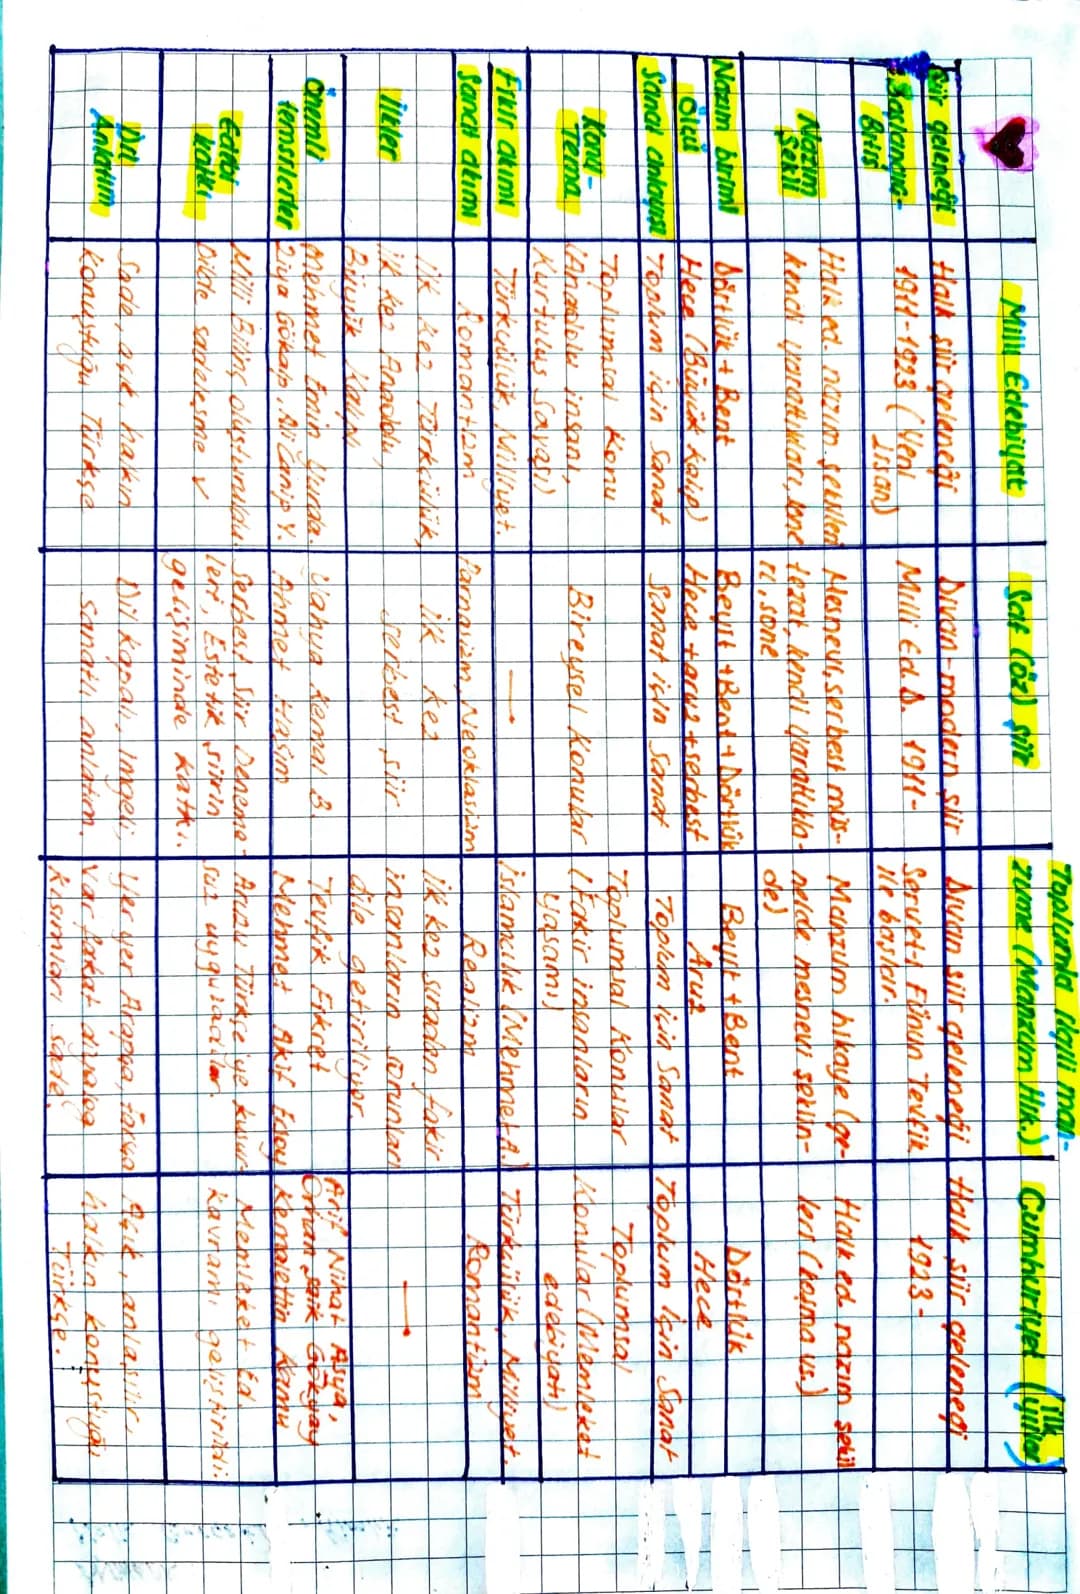 Milli Edebiyat
Saf (öz) şiir
Toplumla ilgili man-
zume (Manzum Hik.)
Cumhuriyet (ilk
yıllar)
Şiir geleneği
Halk şiir geleneği
Divan-modern şiir
Divan şiir geleneği
Halk şiir geleneği
Başlangıç-
Bitiş
1911-1923 (Yeni
Lisan)
Milli Ed. D. 1911-
Servet-i Fünun Tevfik
ile başlar.
1923 -
Nazım
Şekli
Halk ed. nazım şekilleri
kendi yarattıkları, sone
Mesnevi, serbest müs-
tezat, kendi yarattıkla-
rı, sone
Manzum hikaye (ge-
nelde mesnevi şeklin-
de)
Halk ed nazım şekil
leri (koşma vs.)
Nazım birimi
Dörtlük + Bent
Beyit + Bent + Dörtlük
Beyit + Bent
Dörtlük
Ölçü
Hece (Büyük kalıp)
Hece + aruz + serbest
Aruz
Hece
Sanat anlayışı
Toplum için sanat
Sanat için sanat
Toplum için sanat
Toplum için sanat
Konu-
Tema
Toplumsal konu
(Anadolu insanı,
Kurtuluş Savaşı)
Bireysel konular
Toplumsal konular
(Fakir insanların
yaşamı)
Toplumsal
konular (Memleket
edebiyatı)
Fikir akımı
Türkçülük, Milliyet.
—
İslamcılık (Mehmet A.)
Türkçülük, Milliyet.
Sanat akımı
Romantizm
Parnasizm, Neoklasisizm
Realizm
Romantizm
İlkler
İlk kez Türkçülük,
ilk kez Anadolu,
Büyük kalıp
İlk kez
serbest şiir
İlk kez sıradan fakir
insanların sorunları
dile getiriliyor.
—
Önemli
temsilciler
Mehmet Emin Yurda.
Ziya Gökalp, Ali Canip Y.
Yahya Kemal B.
Ahmet Haşim
Tevfik Fikret
Mehmet Akif Ersoy
Arif Nihat Asya,
Orhan Şaik Gökyay
Kemalettin Kamu
Edebi
katkı
Milli Bilinç oluşturuldu.
Dilde sadeleşme
Serbest şiir Deneme-
leri, Estetik şiirin
gelişiminde katkı.
Aruzu Türkçe'ye kusur-
suz uyguladılar.
Memleket Ed.
kavramı geliştirildi.
Dil
Anlatım
Sade, açık, halkın
konuştuğu Türkçe
Dil kapalı, imgeli,
sanatlı anlatım.
Yer yer Arapça, Farsça
var fakat diyalog
kısımları sade.
Açık, anlaşılır,
halkın konuştuğu
Türkçe.